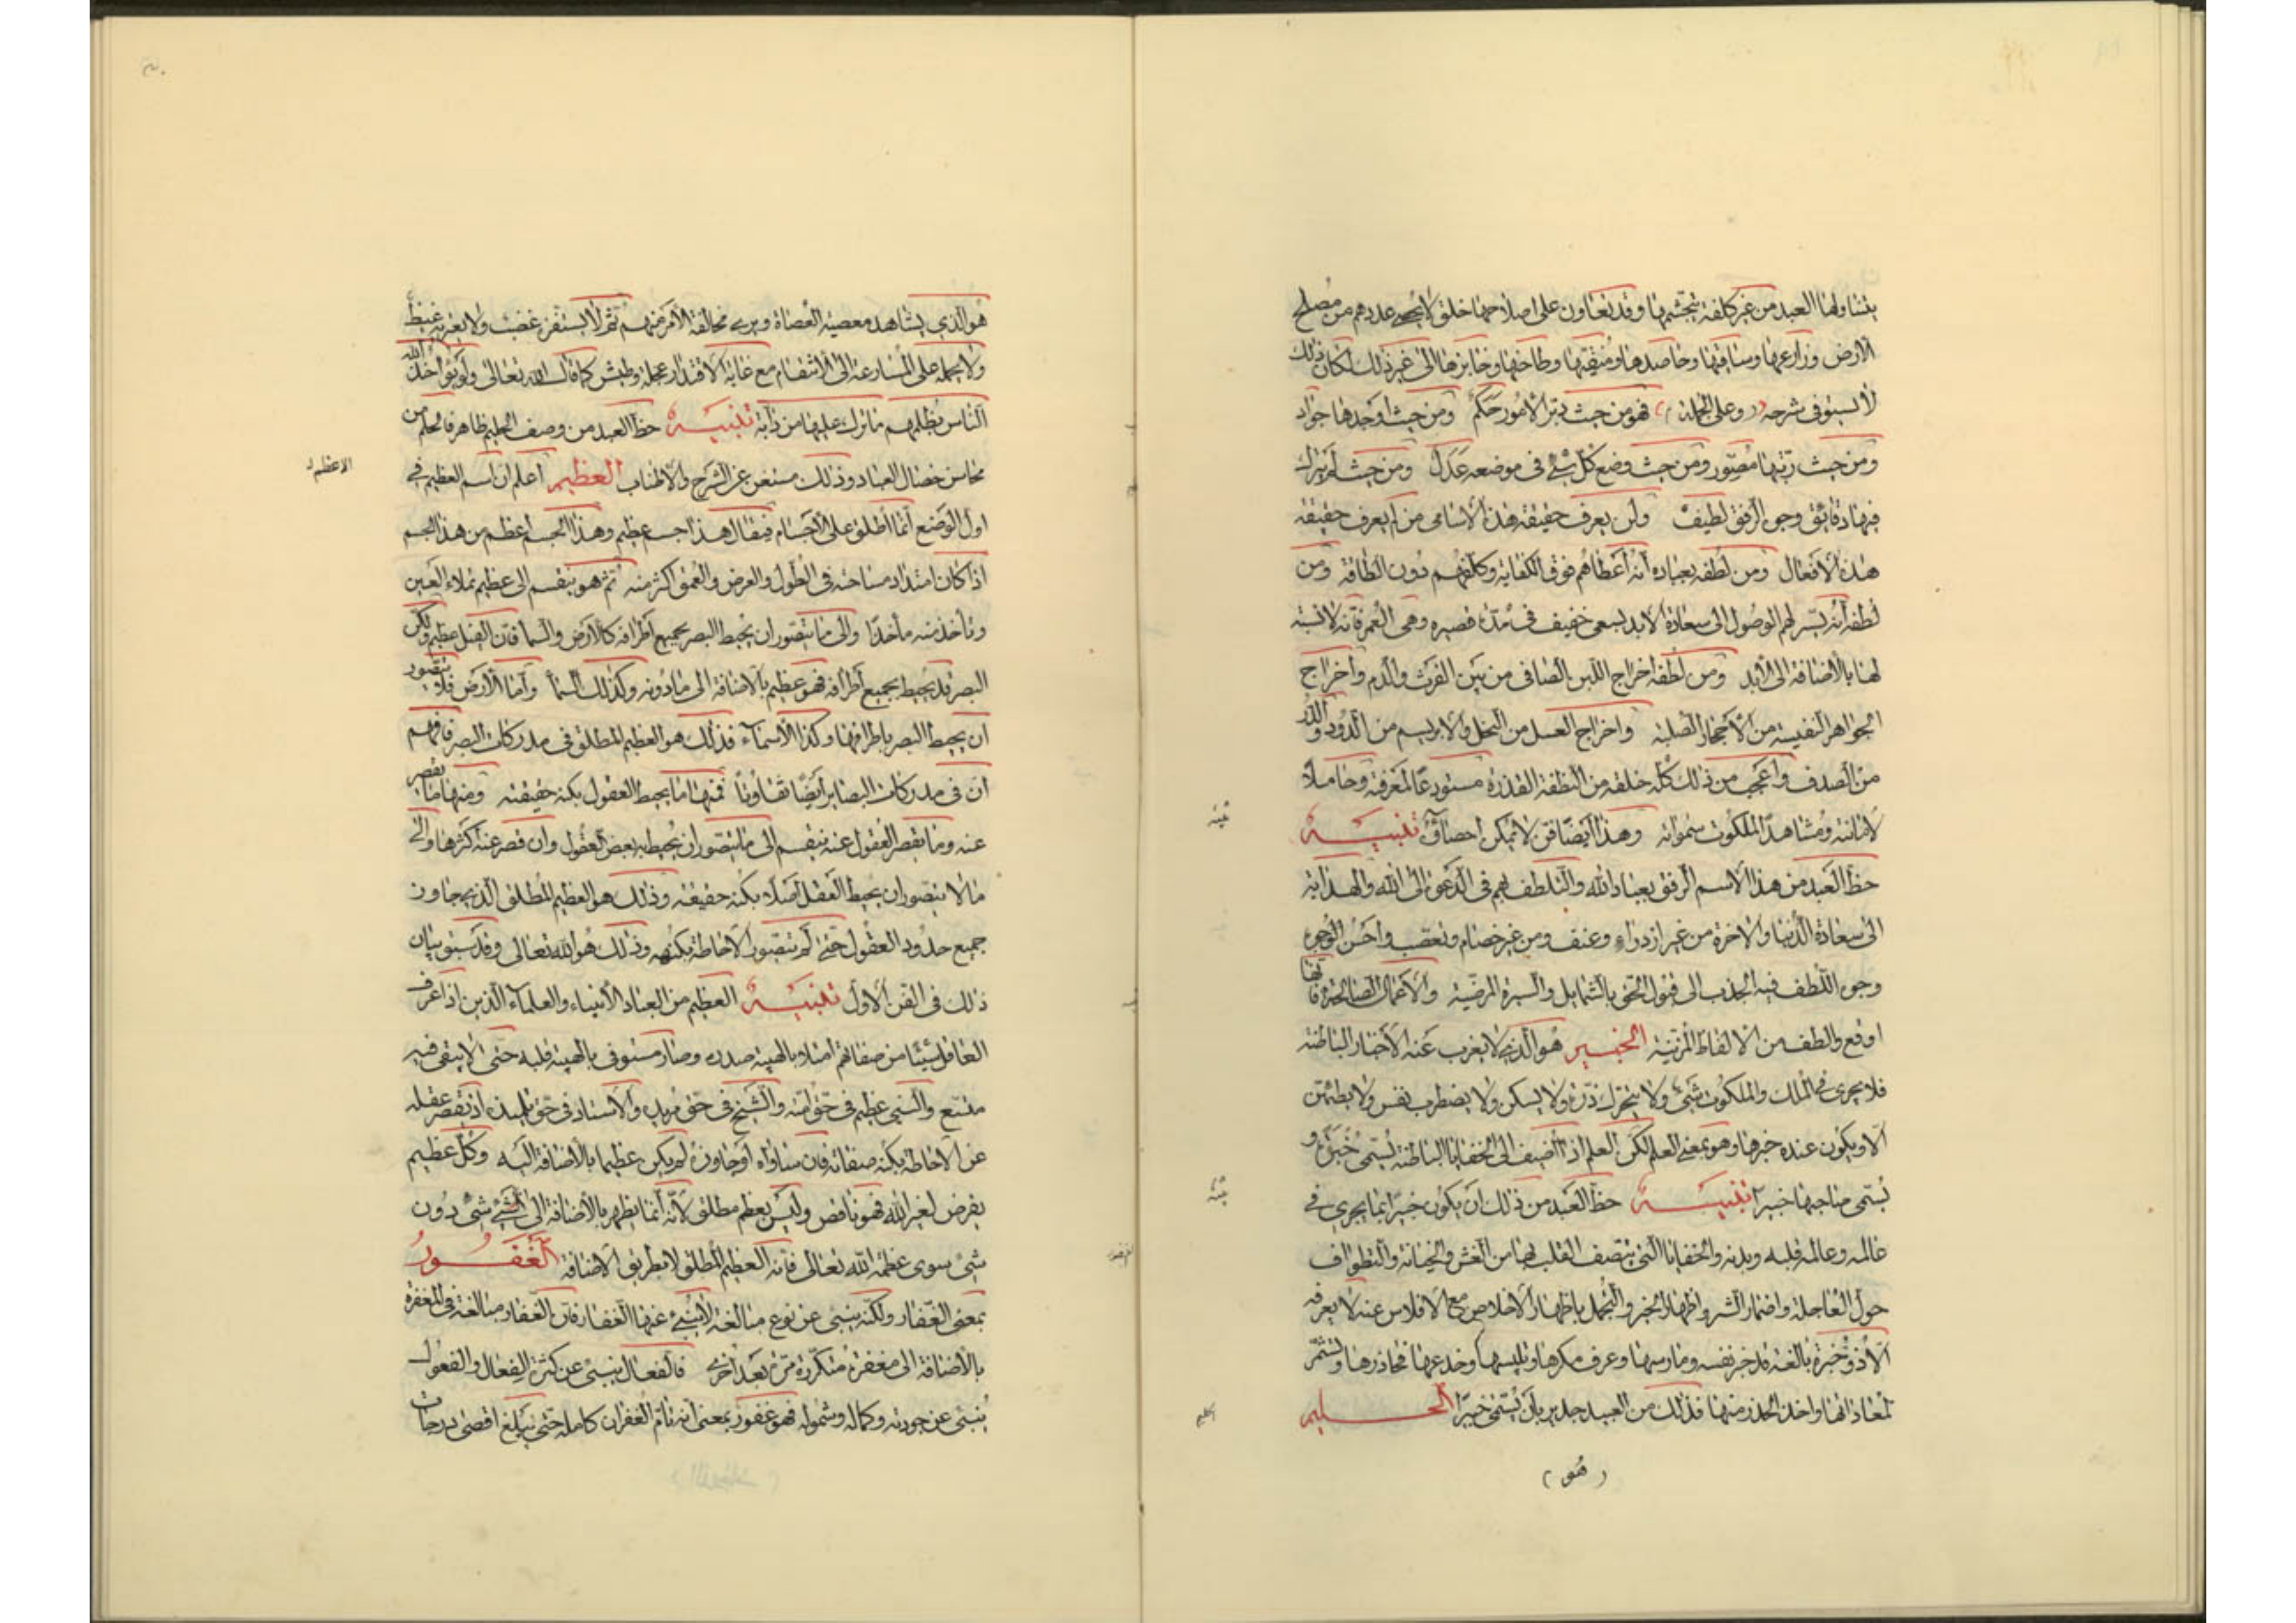 يتناولها العبد من غير كلفة يتجشمها وقد تعاون على اصلاحها خلق لا يحصى عددهم من مصلح
الارض وزارعها وساقيها وحاصدها ومنقيها وطاحنها وخابزها الى غير ذلك لكان ذلك
لا يستوفى شرحه (وعلى الجملة) فهو من حيث دبر الامور حكم ومن حيث اوجدها جواد
ومن حيث رتبها مصور ومن حيث وضع كل شئ فى موضعه عدل ومن حيث لم يترك
فيها دقائق وجوه الرفق لطيف ولن يعرف حقيقة هذه الاسامى من لم يعرف حقيقة
هذه الافعال ومن لطفه بعباده انه اعطاهم فوق الكفاية وكلفهم دون الطاقة ومن
لطفه انه يسر لهم الوصول الى سعادة الابد بسعى خفيف فى مدة قصيره وهى العمر فانه لا نسبة
لها بالاضافة الى الابد ومن لطفه اخراج اللبن الصافى من بين الفرث والدم واخراج
الجواهر النفيسة من الاحجار الصلبة واخراج العسل من النحل والابريسم من الدود والدر
من الصدف واعجب من ذلك كله خلقه من النطفة القذرة مستودعا لمعرفته وحاملا
لامانته ومشاهدا لملكوت سمواته وهذا ايضا فن لا يمكن احصاؤه تنبيه
حظ العبد من هذا الاسم الرفق بعباد الله والتلطف بهم فى الدعوة الى الله والهداية
الى سعادة الدنيا والاخرة من غير ازدراء وعنف ومن غير خصام وتعصب واحسن الوجوه
وجوه اللطف فيه الجذب الى قبول الحق بالشمايل والسيرة المرضية والاعمال الصالحة فانها
اوقع والطف من الالفاظ المزينة الخبير هو الذى لا يعزب عنه الاخبار الباطنة
فلا يجرى فى الملك والملكوت شئ ولا يتحرك ذرة ولا يسكن ولا يضطرب نفس ولا يطمئن
الا ويكون عنده خبرها وهو بمعنى العلم لكن العلم اذا اضيف الى الخفايا الباطنة يسمى خبرة و
يسمى صاحبها خبيرا تنبيه حظ العبد من ذلك ان يكون خبيرا بما يجرى فى
عالمه وعالمه قلبه وبدنه والخفايا التى يتصف القلب بها من الغش والخيانة والتطواف
حول العاجلة واضمار الشر واظهار الخير والتجمل باظهار الاخلاص مع الافلاس عنه لا يعرفه
الا ذو خبرة بالغة قد خبر نفسه ومارسها وعرف مكرها وتلبيسها وخدعها فحاذرها وتشمر
لمعاداتها واخذ الحذر منها فذلك من العبيد جدير بان يسمى خبيرا الحليم
(هو)
تنبيه
تنبيه
الحليم
هو الذى يشاهد معصية العصاة ويرى مخالفة الامر منهم ثم لا يستفزه غضب ولا يعتريه غيظ
ولا يحمله على المسارعة الى الانتقام مع غاية الاقتدار عجلة وطيش كما قال الله تعالى ولو يؤاخذ الله
الناس بظلمهم ما ترك عليها من دابة تنبيه حظ العبد من وصف الحليم ظاهر فالحلم من
محاسن خصال العباد وذلك مستغن عن الشرح والاطناب العظيم اعلم ان اسم العظيم فى
اول الوضع انما اطلق على الاجسام فيقال هذا جسم عظيم وهذا الجسم اعظم من هذا الجسم
اذا كان امتداد مساحته فى الطول والعرض والعمق اكثر منه ثم هو ينقسم الى عظيم تملاء العين
وتأخذ منه مأخذا والى ما يتصور ان يحيط البصر بجميع اطرافه كالارض والسما فان الفيل عظيم ولكن
البصر قد يحيط بجميع اطرافه فهو عظيم بالاضافة الى ما دونه وكذلك السما واما الارض فلا يتصور
ان يحيط البصر باطرافها وكذا الاسماء فذلك هو العظيم المطلق فى مدركات البصر فافهم
ان فى مدركات البصاير ايضا تفاوتا فمنها ما يحيط العقول بكنه حقيقته ومنها ما يقصر
عنه وما يقصر العقول عنه ينقسم الى ما يتصور ان يحيط به بعض العقول وان قصر عنه اكثرها والى
ما لا يتصور ان يحيط العقل اصلا بكنه حقيقته وذلك هو العظيم المطلق الذى جاوز
جميع حدود العقول حتى لم يتصور الاحاطة بكنهه وذلك هو الله تعالى وقد سبق بيان
ذلك فى الفن الاول تنبيه العظيم من العباد الانبياء والعلماء الذين اذا عرف
العاقل شيئا من صفاتهم امتلاء بالهيبة صدره وصار مستوفى بالهيبة قلبه حتى لا يبقى فيه
متسع والنبى عظيم فى حق امته والشيخ فى حق مريده والاستاد فى حق تلميذه اذ يقصر عقله
عن الاحاطة بكنه صفاته فان ساواه او جاوزه لم يكن عظيما بالاضافة اليه وكل عظيم
يفرض لغير الله فهو ناقص وليس بعظيم مطلق لانه انما يظهر بالاضافة الى شئ دون
شئ سوى عظمة الله تعالى فانه العظيم المطلق لا بطريق الاضافة الغفور
بمعنى الغفار ولكنه ينبئ عن نوع مبالغة لا ينبئ عنها الغفار فان الغفار مبالغة فى المغفرة
بالاضافة الى مغفرة متكررة مرة بعد اخرى فالفعال ينبئ عن كثرة الفعال والفعول
ينبئ عن جودته وكماله وشموله فهو غفور بمعنى انه تام الغفران كامله حتى يبلغ اقصى درجات